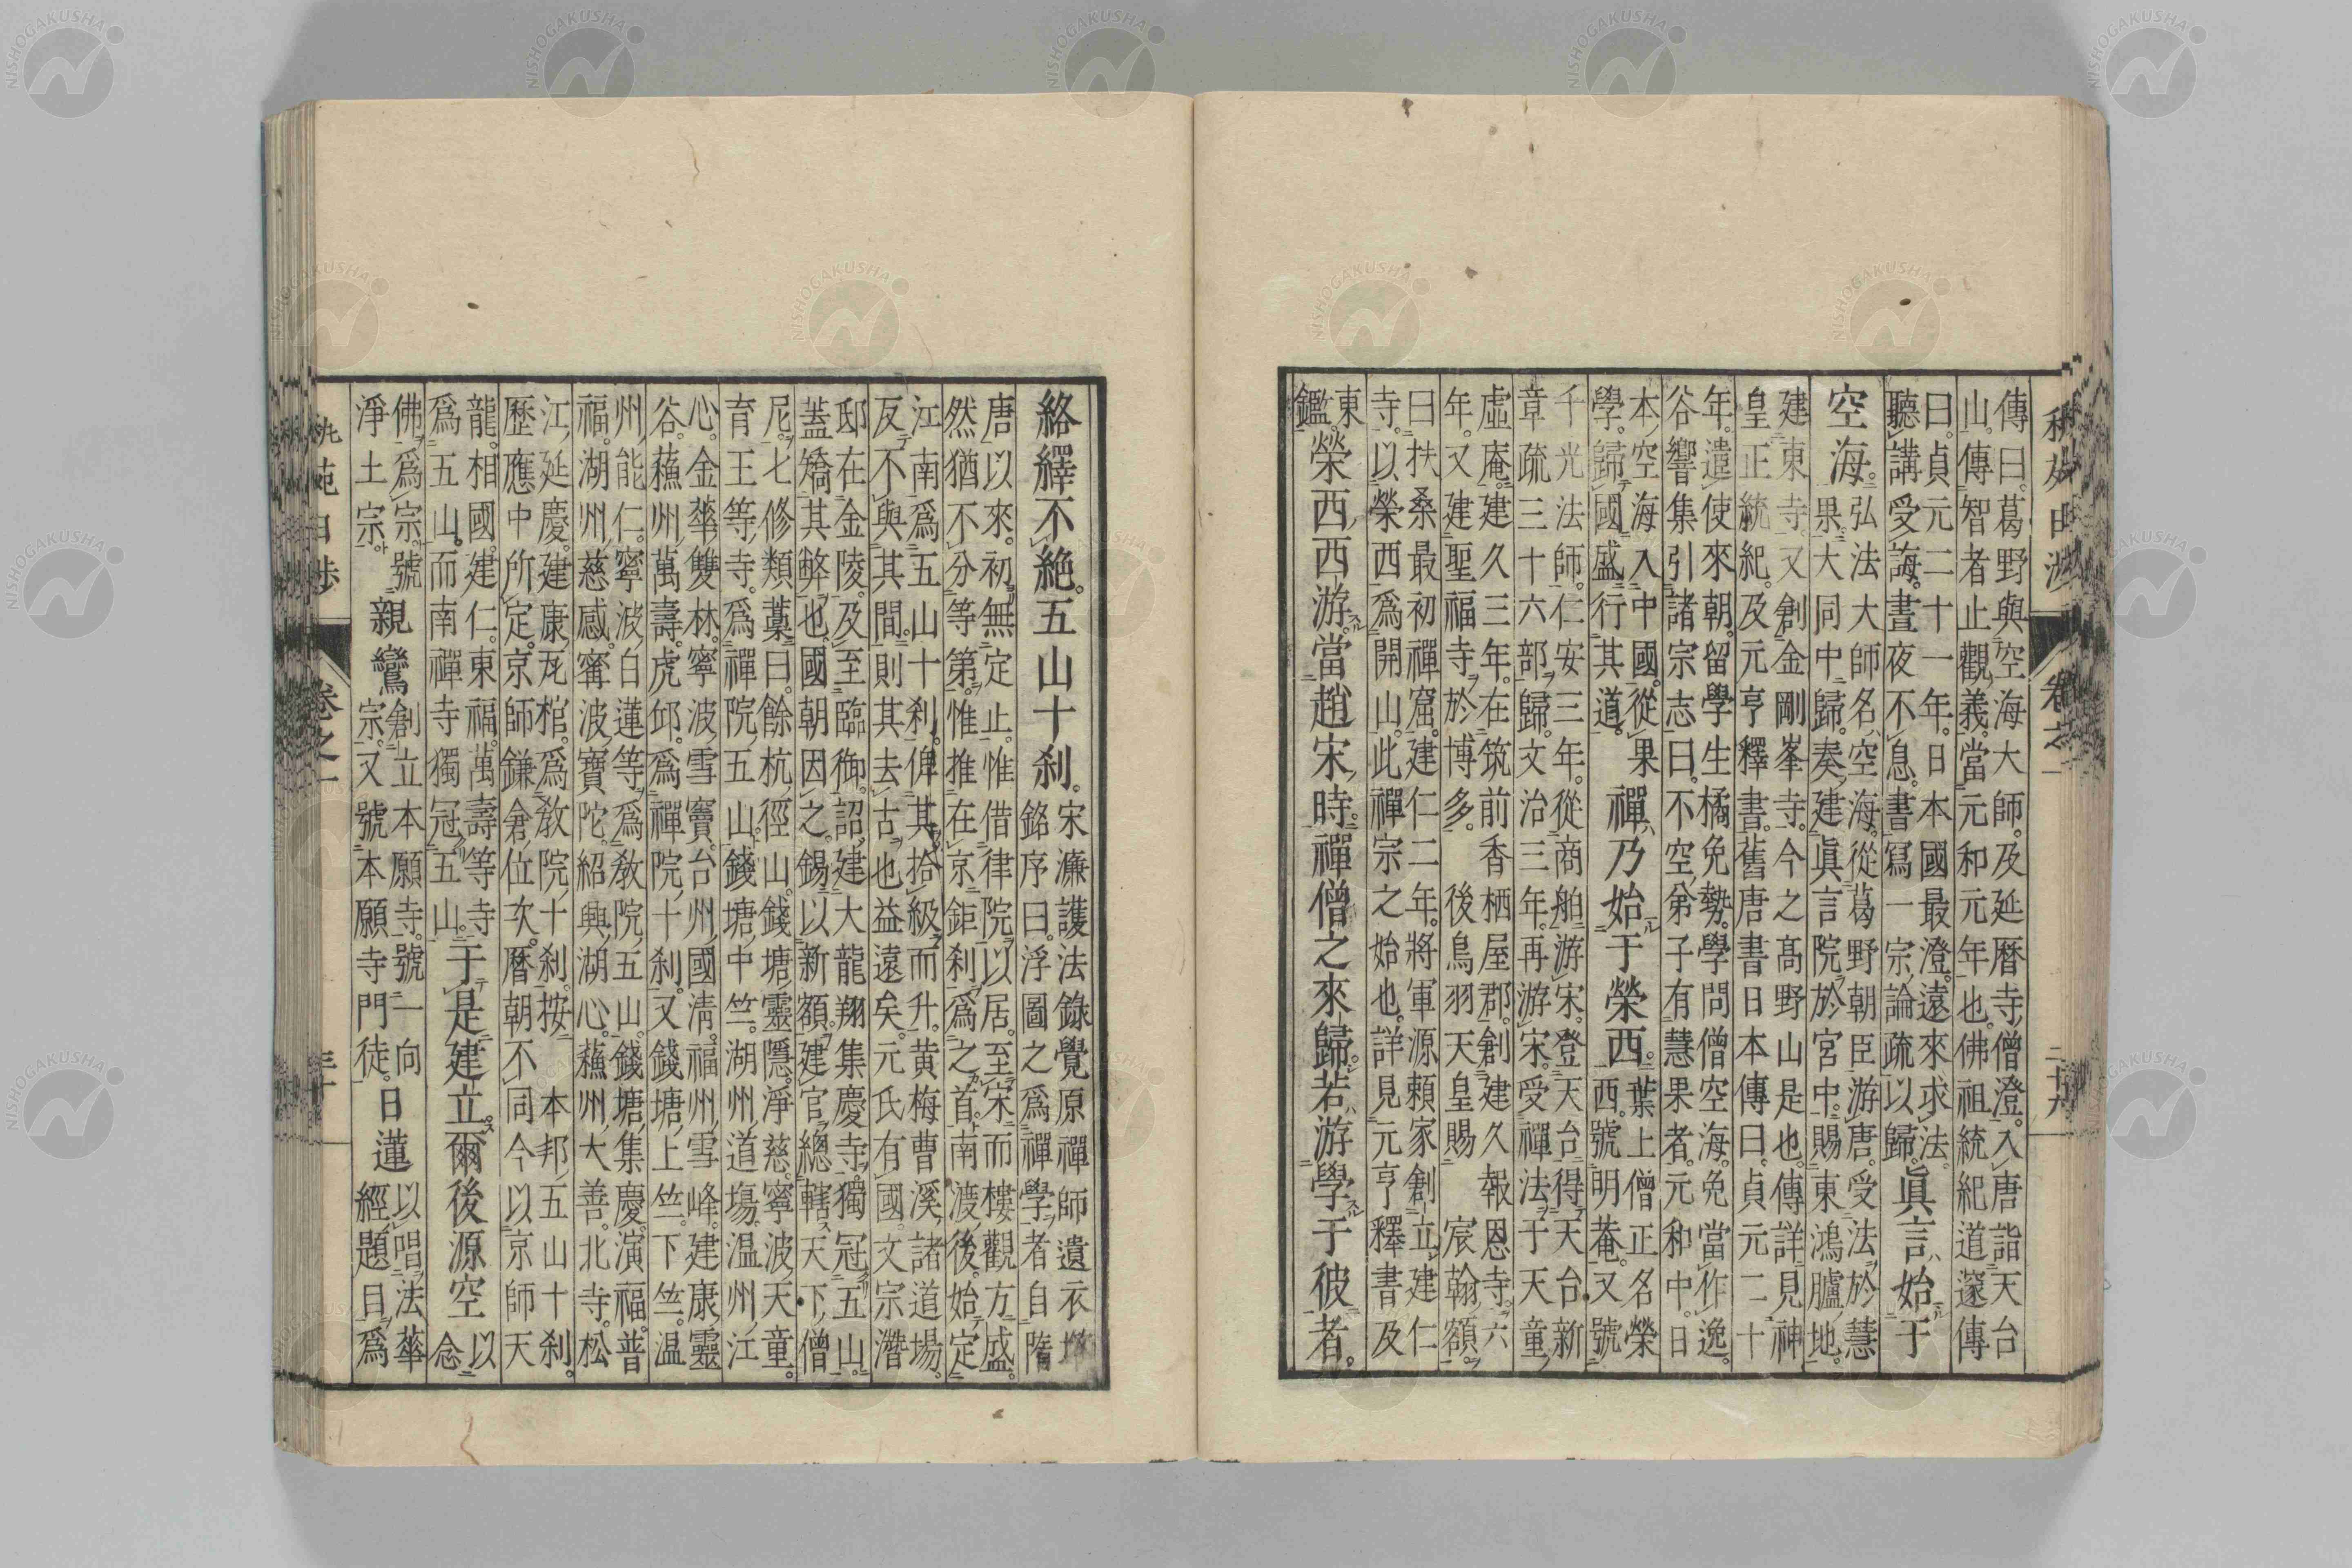 傳曰。葛野與空海大師。及延曆寺僧澄。入唐詣天台
山。傳智者止觀義。當元和元年也。佛祖統紀道邃傳
曰。貞元二十一年。日本國最澄。遠來求法。
聽講受誨。晝夜不息。書寫一宗論疏以歸。
眞言始于
空海。
弘法大師名空海。從葛野朝臣游唐。受法於慧
果。大同中歸。奏建眞言院於宮中。賜東鴻臚地。
建東寺。又創金剛峯寺。今之髙野山是也。傳詳見神
皇正統紀。及元亨釋書。舊唐書日本傳曰。貞元二十
年。遣使來朝。留學生橘免勢。學問僧空海。免當作逸。
谷響集引諸宗志曰。不空弟子有慧果者。元和中。日
本空海入中國。從果
學。歸國盛行其道。
禪乃始于榮西。
葉上僧正名榮
西。號明菴。又號
千光法師。仁安三年。從商舶游宋。登天台得天台新
章疏三十六部歸。文治三年。再游宋。受禪法于天童
虛庵。建久三年。在筑前香栖屋郡。創建久報恩寺。六
年。又建聖福寺於博多。後鳥羽天皇賜宸翰額。
曰扶桑最初禪窟。建仁二年。將軍源賴家創立建仁
寺。以榮西爲開山。此禪宗之始也。詳見元亨釋書及
東
鑑。
榮西西游。當趙宋時。禪僧之來歸。若游學于彼者。
絡繹不絶。五山十刹。
宋濂護法錄覺原禪師遺衣塔
銘序曰。浮圖之爲禪學者。自隋
唐以來。初無定止。惟借律院以居。至宋而樓觀方盛。
然猶不分等第。惟推在京鉅刹爲之首。南渡後。始定
江南爲五山十刹。俾其拾級而升。黄梅曹溪諸道場。
反不與其間。則其去古也益遠矣。元氏有國。文宗潛
邸在金陵。及至臨御。詔建大龍翔集慶寺。獨冠五山。
蓋矯其弊也。國朝因之。錫以新額。建官總轄天下僧
尼。七修類藁曰。餘杭徑山。錢塘靈隱。淨慈。寧波天童。
育王等寺。爲禪院五山。錢塘中竺。湖州道塲。温州江
心。金華雙林。寧波雪竇。台州國淸。福州雪峰。建康靈
谷。蘓州萬壽。虎邱。爲禪院十刹。又錢塘上竺。下竺。温
州能仁。寧波白蓮等。爲敎院五山。錢塘集慶。演福。普
福。湖州慈感。寗波寶陀。紹興湖心。蘓州大善。北寺。松
江延慶。建康瓦棺。爲敎院十刹。按本邦五山十刹。
歷應中所定。京師鎌倉位次。曆朝不同。今以京師天
龍。相國。建仁。東福。萬壽等寺
爲五山。而南禪寺獨冠五山。
于是建立。爾後源空
以
念
佛爲宗。號
淨土宗。
親鸞
創立本願寺。號一向
宗。又號本願寺門徒。
日蓮
以唱法華
經題目爲
卷之一
二十九